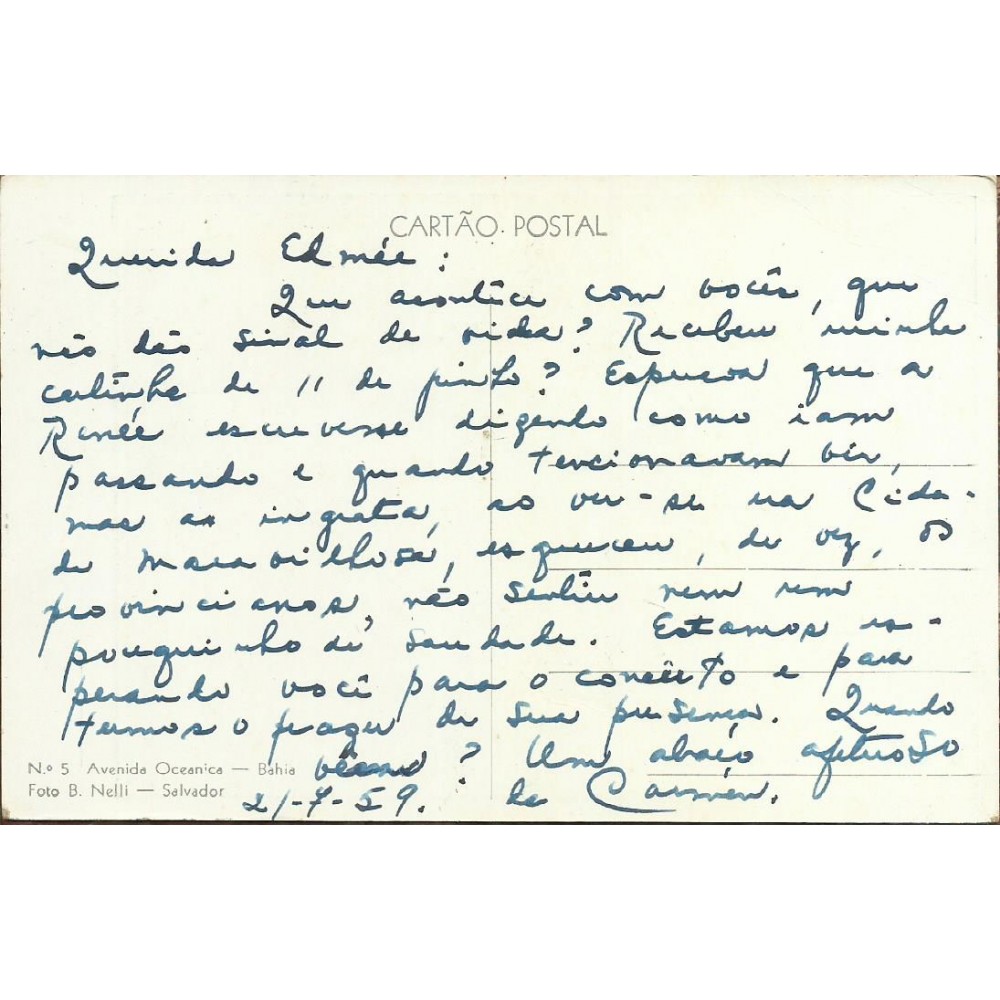 CARTÃO POSTAL
Querida Edmée:
Que acontece com vocês, que
não dão sinal de vida? Recebeu minha
cartinha de 11 de junho? Esperava que a
Renée escrevesse dizendo como iam
passando e quando tencionavam vir,
mas a ingrata, ao ver-se na Cida-
de Maravilhosa, esqueceu, de vez, os
provincianos, não sentiu nem um
pouquinho de saudade. Estamos es-
perando você para o concêrto e para
termos o prazer de sua presença. Quando
vêem? Um abraço afetuoso
da Carmén.
21-7-59.
N.º 5 Avenida Oceanica — Bahia
Foto B. Nelli — Salvador